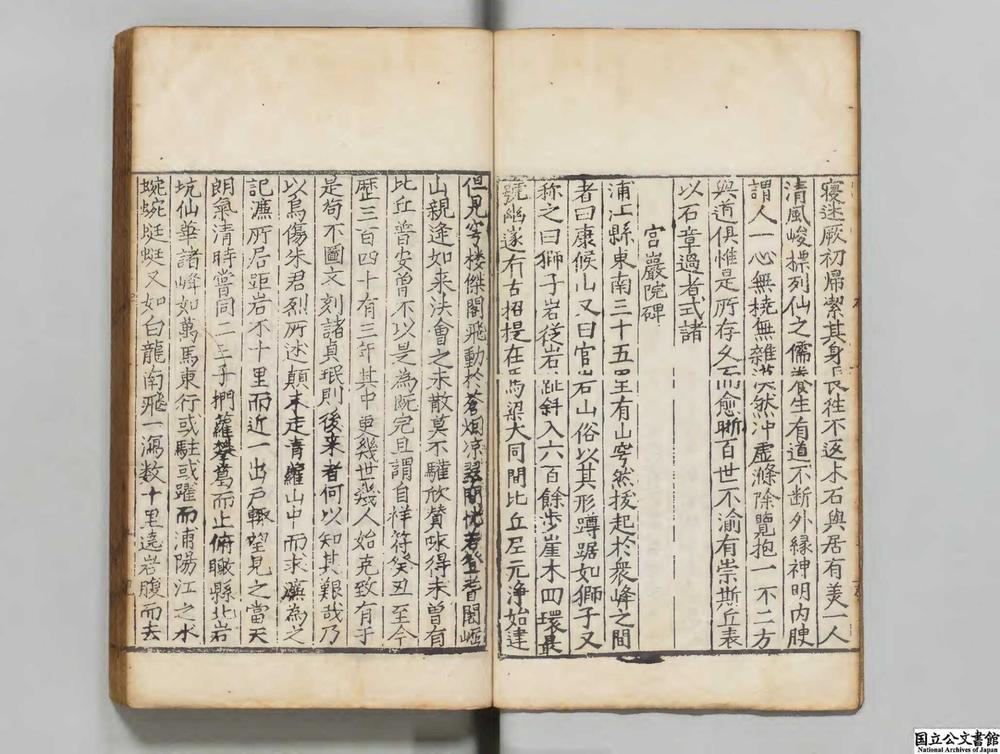 寝迷厥初帰絜其身長往不返木石與居有美一人
清風峻標列仙之儒養生有道不断外縁神明内腴
謂人一心無撓無雜漠然冲虚滌除覽抱一不二方
與道俱惟是所存久而愈晰百世不渝有崇斯丘表
以石章過者式諸
官巖院碑
浦江縣東南三十五里有山穹然拔起於衆峰之間
者曰康候山又曰官岩山俗以其形蹲踞如獅子又
称之曰獅子岩従岩趾斜入六百餘歩崖木四環最
號幽邃有古招提在焉梁大同間比丘元淨始建
但見穹楼傑閣飛動於蒼烟凉翠間恍若登耆闍崛
山親逢如来法會之未散莫不驩欣賛咏得未曽有
比丘普安曽不以是為既完且謂自祥符癸丑至今
歴三百四十有三年其中更幾世幾人始克致有于
是苟不圖文刻諸貞珉則後来者何以知其艱哉乃
以烏傷朱君烈所述顛末走青蘿山中而求濂為之
記濂所居距岩不十里而近一出戸輒望見之當天
朗氣清時嘗同二三子捫蘿攀葛而上俯瞰縣北岩
坑仙華諸峰如萬馬東行或駐或躍而浦陽江之水
蜿蜿蜒蜒又如白龍南飛一瀉数十里遶岩腹而去
国立公文書館
National Archives of Japan